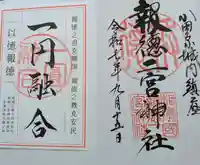 小田原城内鎮座
報徳二宮神社
令和七年九月十五日
一円融合
以徳報徳